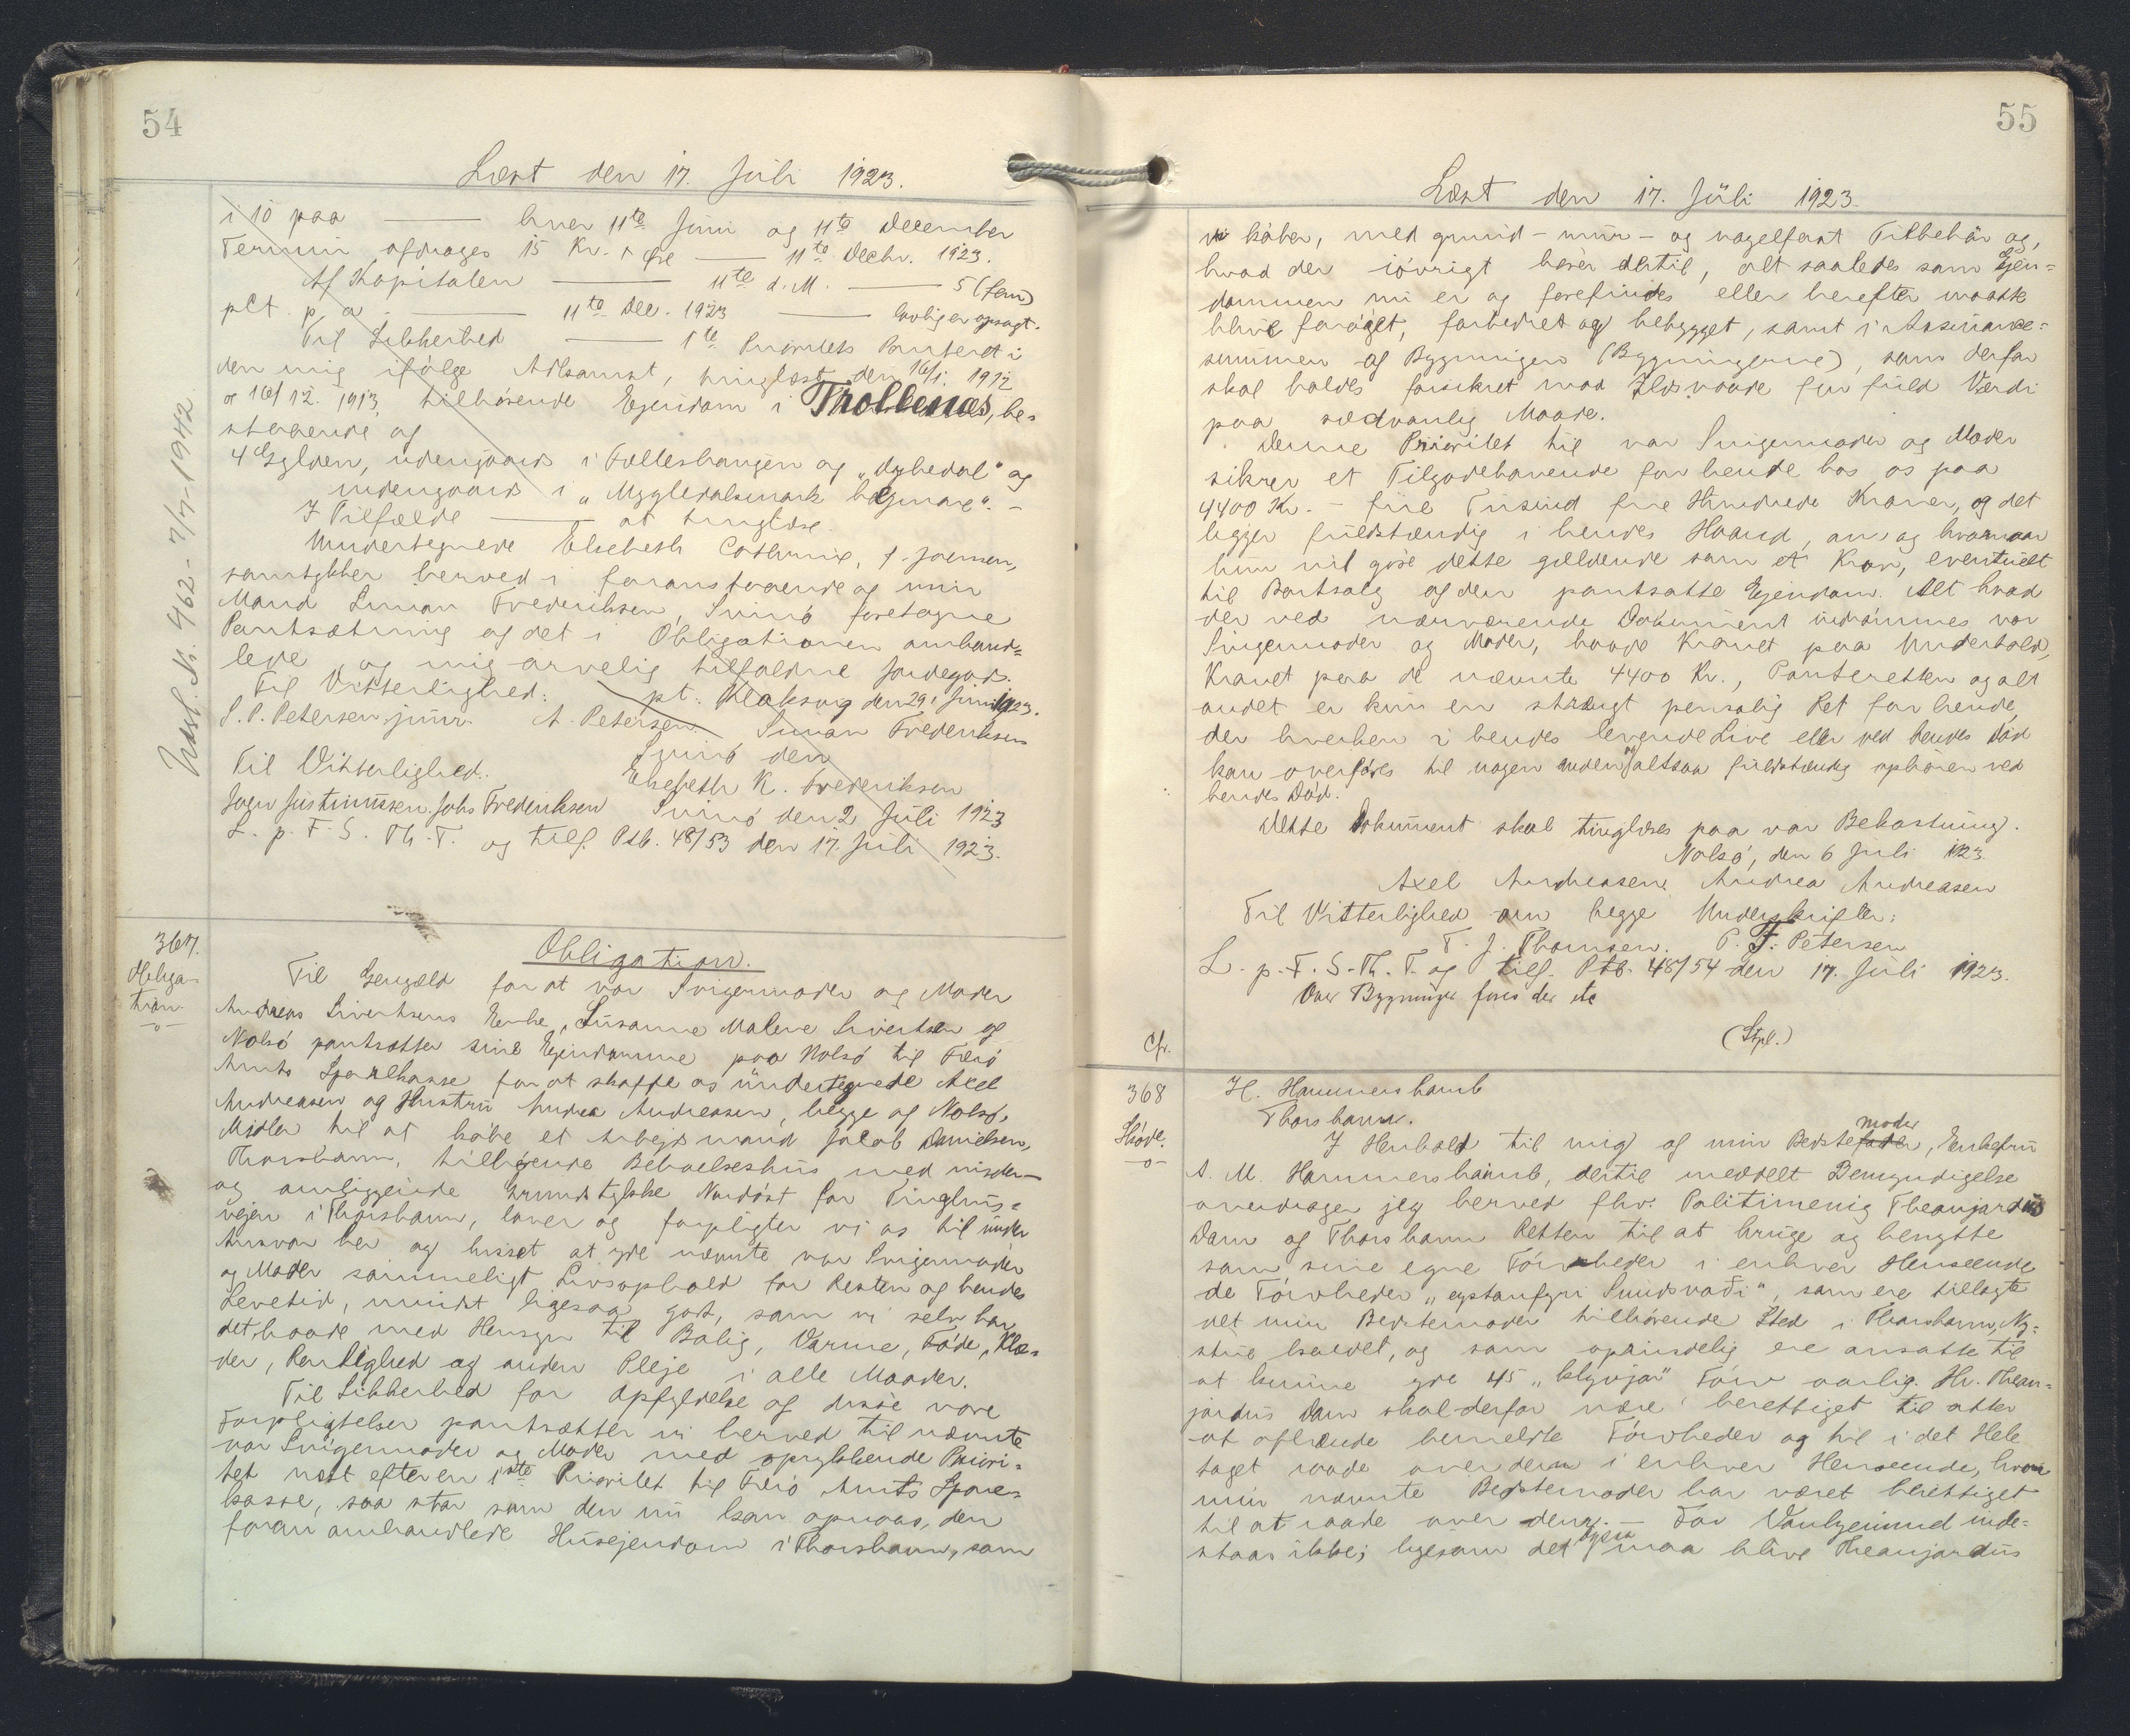 54
Læst den 17. Juli 1923.
i 10 paa — hver 11te Juni og 11te December
Termin afdrages 15 Kr. + Øre — 11te Decbr. 1923.
Af Kapitalen — 11te d. M. — 5 (fem)
pCt. p. a. — 11te Dec. 1923 — lovlig er opsagt.
Til Sikkerhed — 1te Prioritets Panteret i
den mig ifølge Atkomst, tinglæst den 16/1. 1912
og 16/12. 1913, tilhørende Ejendom i Trollenæs, be-
staaende af
4 Gylden, udengaards i Felleshaugen og „Dyhedal" og
indengaards i
I Tilfælde — at tinglæse.
Undertegnede Elsebeth Cathrine, f. Joensen,
samtykker herved i foranstaaende af min
Mand Simon Frederiksen, Svinø foretagne
Pantsætning af det i Obligationen omhand=
lede, og mig arvelig tilfaldne Jordegods.
pt. Klaksvig den 29. Juni 1923.
Til Vitterlighed:
S. P. Petersen junr. A. Petersen Simon Frederiksen
Svinø den
Til Vitterlighed: Elsebeth K. Frederiksen
Jogn Justinussen. Johs Frederiksen Svinø den 2 Juli 1923
L. p. F. S. Th. T. og tilf. Ptb. 48/53 den 17. Juli 1923.
Udsl. N. 462 - 7/7-1942
367.
Obliga-
tion.
-o-
Obligation.
Til Gengæld for at vor Svigermoder og Moder
Andreas Sivertsens Enke, Susanne Malene Sivertsen af
Nolsø pantsætter sine Ejendomme paa Nolsø til Færø
Amts Sparekasse for at skaffe os undertegnede Axel
Andreasen og Hustru Andrea Andreasen, begge af Nolsø,
Midler til at købe et Arbejdsmand Jakob Danielsen,
Thorshavn, tilhørende Beboelseshus med under-
og omliggende Grundstykke Nordøst for Tinghus=
vejen i Thorshavn, lover og forpligter vi os til under
Ansvar her og hisset at yde nævnte vor Svigermoder
og Moder sømmeligt Livsophold for Resten af hendes
Levetid, mindst ligesaa godt, som vi selv har
det, baade med Hensyn til Bolig, Varme, Føde, Klæ=
der, Renlighed og anden Pleje i alle Maader.
Til Sikkerhed for Opfyldelse af disse vore
Forpligtelser pantsætter vi herved til nævnte
vor Svigermoder og Moder med oprykkende Priori=
tet næst efter en 1ste Prioritet til Færø Amts Spare=
kasse, saa stor som den nu kan opnaas, den
foran omhandlede Husejendom i Thorshavn, som
55
Læst den 17. Juli 1923.
vi køber, med grund- mur- og nagelfast Tilbehør og,
hvad der iøvrigt hører dertil, alt saaledes som Ejen=
dommen nu er og forefindes eller herefter maatte
blive forøget, forbedret og bebygget, samt i Assurance=
summen af Bygningen (Bygningerne), som derfor
skal holdes forsikret mod Ildsvaade for fuld Værdi
paa sædvanlig Maade.
Denne Prioritet til vor Svigermoder og Moder
sikrer et Tilgodehavende for hende hos os paa
4400 Kr. - fire Tusind fire Hundrede Kroner, og det
ligger fuldstændig i hendes Haand, om og hvornaar
hun vil gøre dette gældende som et Krav, eventuelt
til Bortsalg af den pantsatte Ejendom. Alt hvad
der ved nærværende Dokument indrømmes vor
Svigermoder og Moder, baade Kravet paa Underhold,
Kravet paa de nævnte 4400 Kr., Panteretten og alt
andet er kun en strængt personlig Ret for hende,
der hverken i hendes levende Live eller ved hendes Død
kan overføres til nogen anden, og altsaa fuldstændig ophører ved
hendes Død.
Dette Dokument skal tinglæses paa vor Bekostning.
Nolsø, den 6 Juli 1923.
Axel Andreasen, Andrea Andreasen
Til Vitterlighed om begge Underskrifter:
T. J. Thomsen. P. F. Petersen
L. p. F. S. Th. T. og tilf. Ptb. 48/54 den 17. Juli 1923.
Over Bygninger føres der etc
Cfr. (Stpl.)
368
Skøde.
-o-
H. Hammershaimb
Thorshavn.
I Henhold til mig af min Bedstefadermoder, Enkefru
A. M. Hammershaimb, dertil meddelt Bemyndigelse
overdrager jeg herved fhv. Politimenig Theanjardus
Dam af Thorshavn Retten til at bruge og benytte
som sine egne Tórvheder i enhver Henseende
de Tórvheder „eystanfyri Sundsvaði", som ere tillagte
det min Bedstemoder tilhørende Sted i Thorshavn, Ny=
stue kaldet, og som oprindelig ere ansatte til
at kunne yde 45 „klyvjar" Tórv aarlig. Hr. Thean=
jardus Dam skal derfor være berettiget til atter
at afhænde bemeldte Tórvheder og til i det Hele
taget raade over dem i enhver Henseende, hvor
min nævnte Bedstemoder har været berettiget
til at raade over dem. - For Vanhjemmel inde=
staas ikke; ligesom det ogsaa maa blive Theanjardus